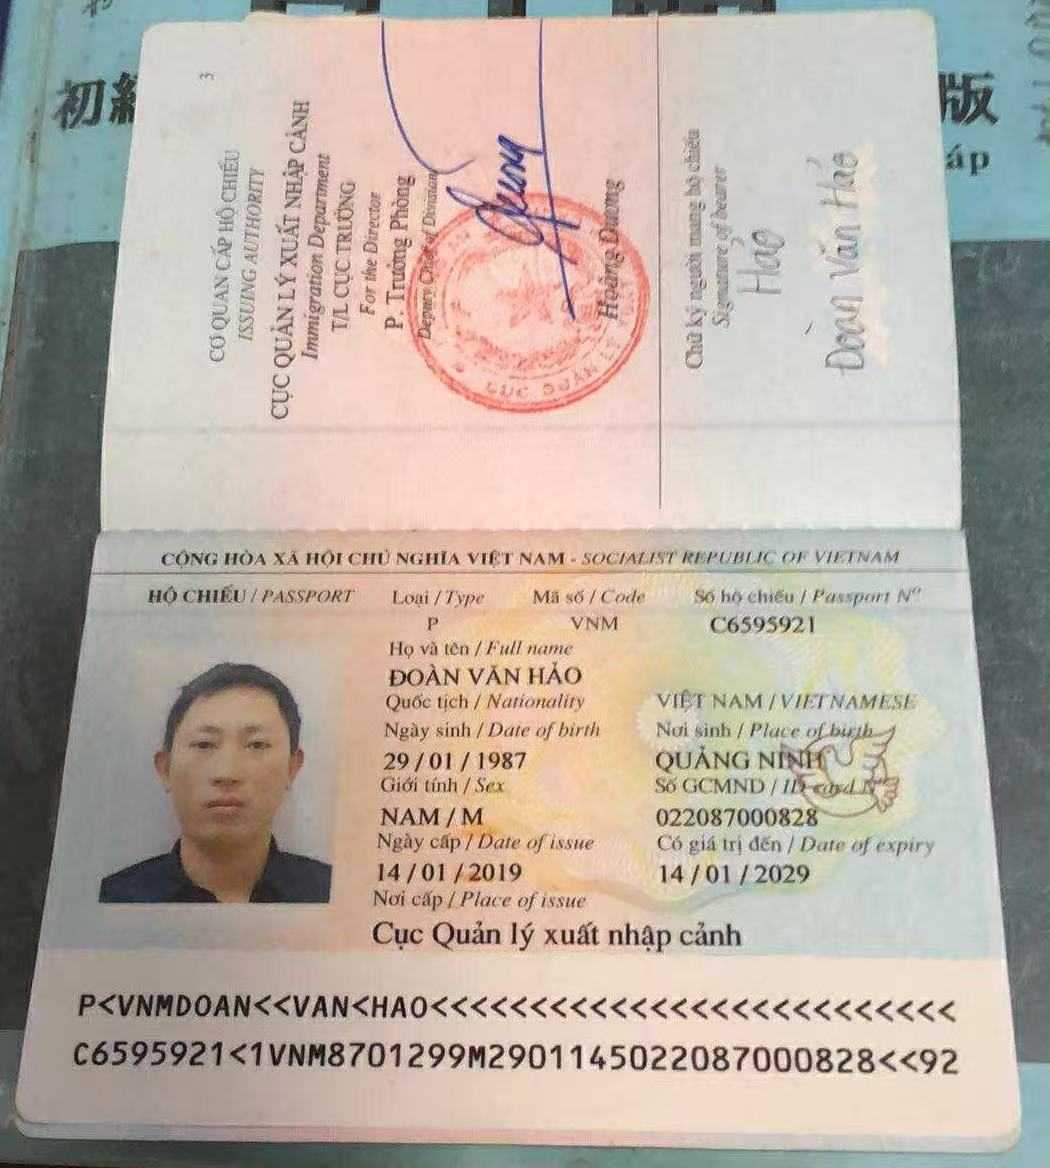 初
版
áp
3
CƠ QUAN CẤP HỘ CHIẾU
ISSUING AUTHORITY
CỤC QUẢN LÝ XUẤT NHẬP CẢNH
Immigration Department
T/L CỤC TRƯỞNG
For the Director
P. Trưởng Phòng
Deputy Chief of Division
Hoàng Dương
Chữ ký người mang hộ chiếu
Signature of bearer
Hảo
Đoàn Văn Hảo
CỘNG HÒA XÃ HỘI CHỦ NGHĨA VIỆT NAM - SOCIALIST REPUBLIC OF VIETNAM
HỘ CHIẾU / PASSPORT Loại / Type Mã số / Code Số hộ chiếu / Passport Nº
P VNM C6595921
Họ và tên / Full name
ĐOÀN VĂN HẢO
Quốc tịch / Nationality VIỆT NAM / VIETNAMESE
Ngày sinh / Date of birth Nơi sinh / Place of birth
29 / 01 / 1987 QUẢNG NINH
Giới tính / Sex Số GCMND / ID card Nº
NAM / M 022087000828
Ngày cấp / Date of issue Có giá trị đến / Date of expiry
14 / 01 / 2019 14 / 01 / 2029
Nơi cấp / Place of issue
Cục Quản lý xuất nhập cảnh
P<VNMDOAN<<VAN<HAO<<<<<<<<<<<<<<<<<<<<<<<<<<
C6595921<1VNM8701299M2901145022087000828<<92